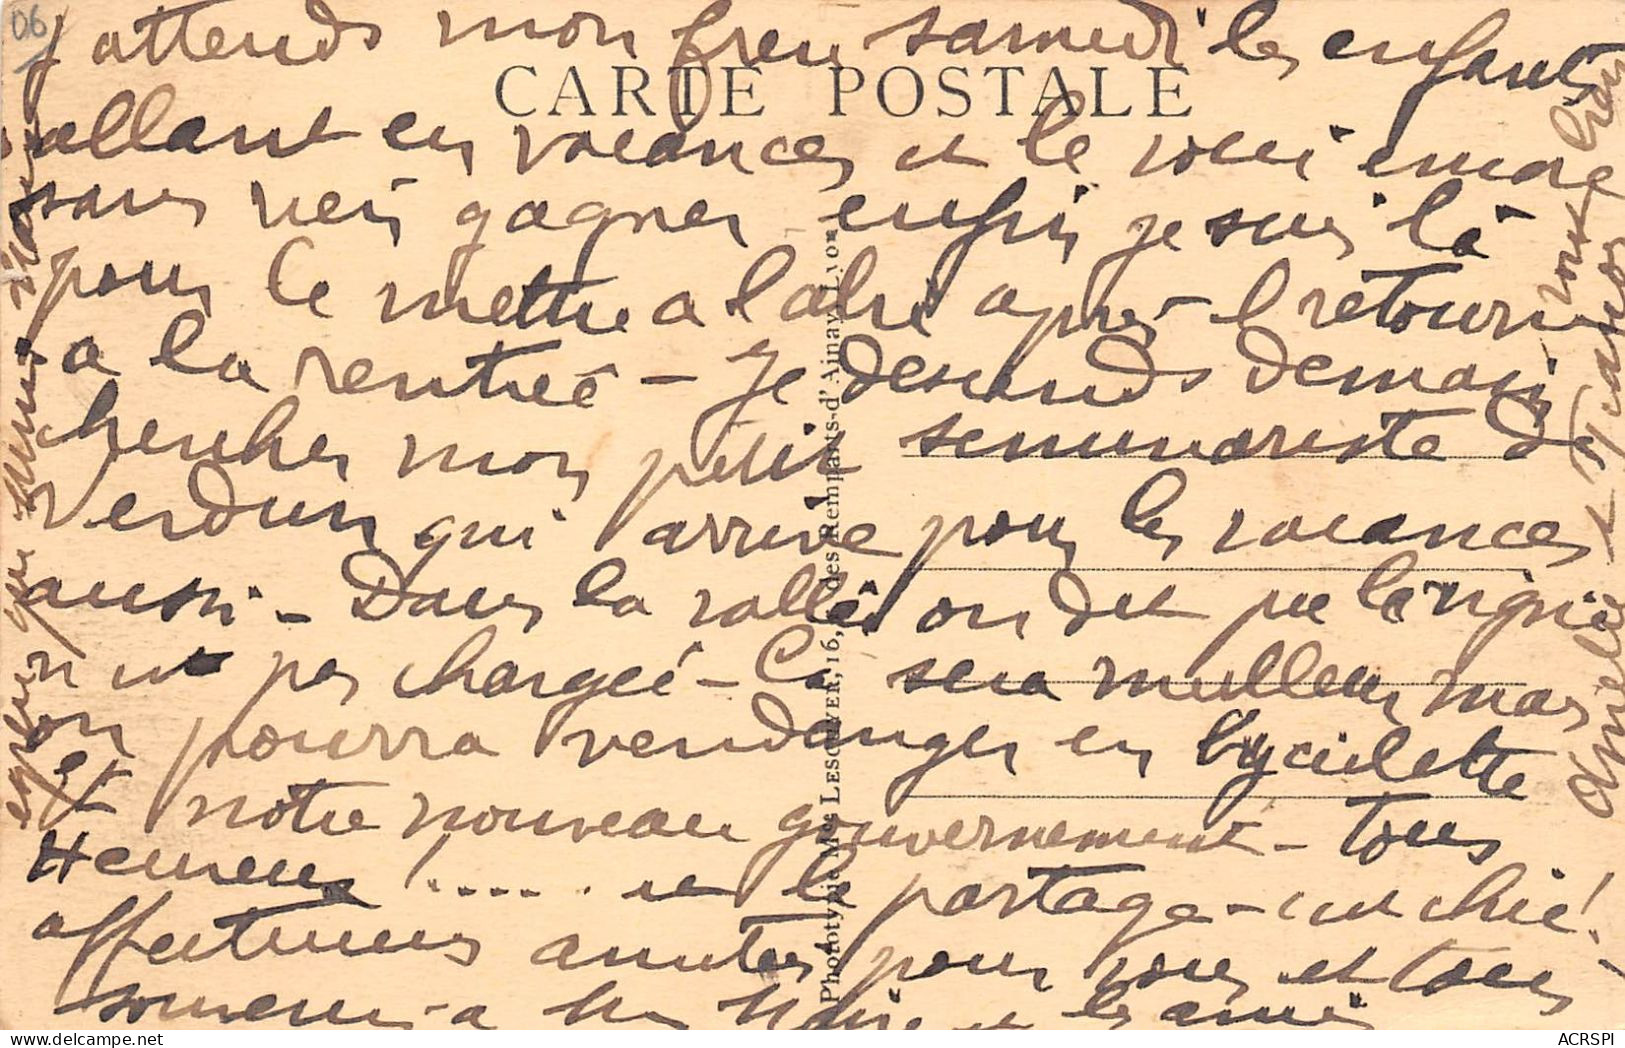 06
J'attends mon samedi les enfants
CARTE POSTALE
allant en vacances et le voici encore
sans rien gagner enfin je suis là
pour le mettre à l'abri après il retourne
à la rentrée - Je descends demain
chercher mon petit séminariste de
Verdun qui arrive pour les vacances
aussi - Dans la vallée on dit que la vigne
n'est pas chargée - Ce sera meilleur mais
on pourra vendanger en bycictette
et notre nouveau gouvernement - tous
Heureux ! ..... et le partage - c'est chic !
affectueuses amitiés pour vous et tous
souvenirs à Me Noire et les amis
Amélie
Phototypie Me LESCUYER, 16, des Remparts-d'Ainay, Lyon
ACRSPI